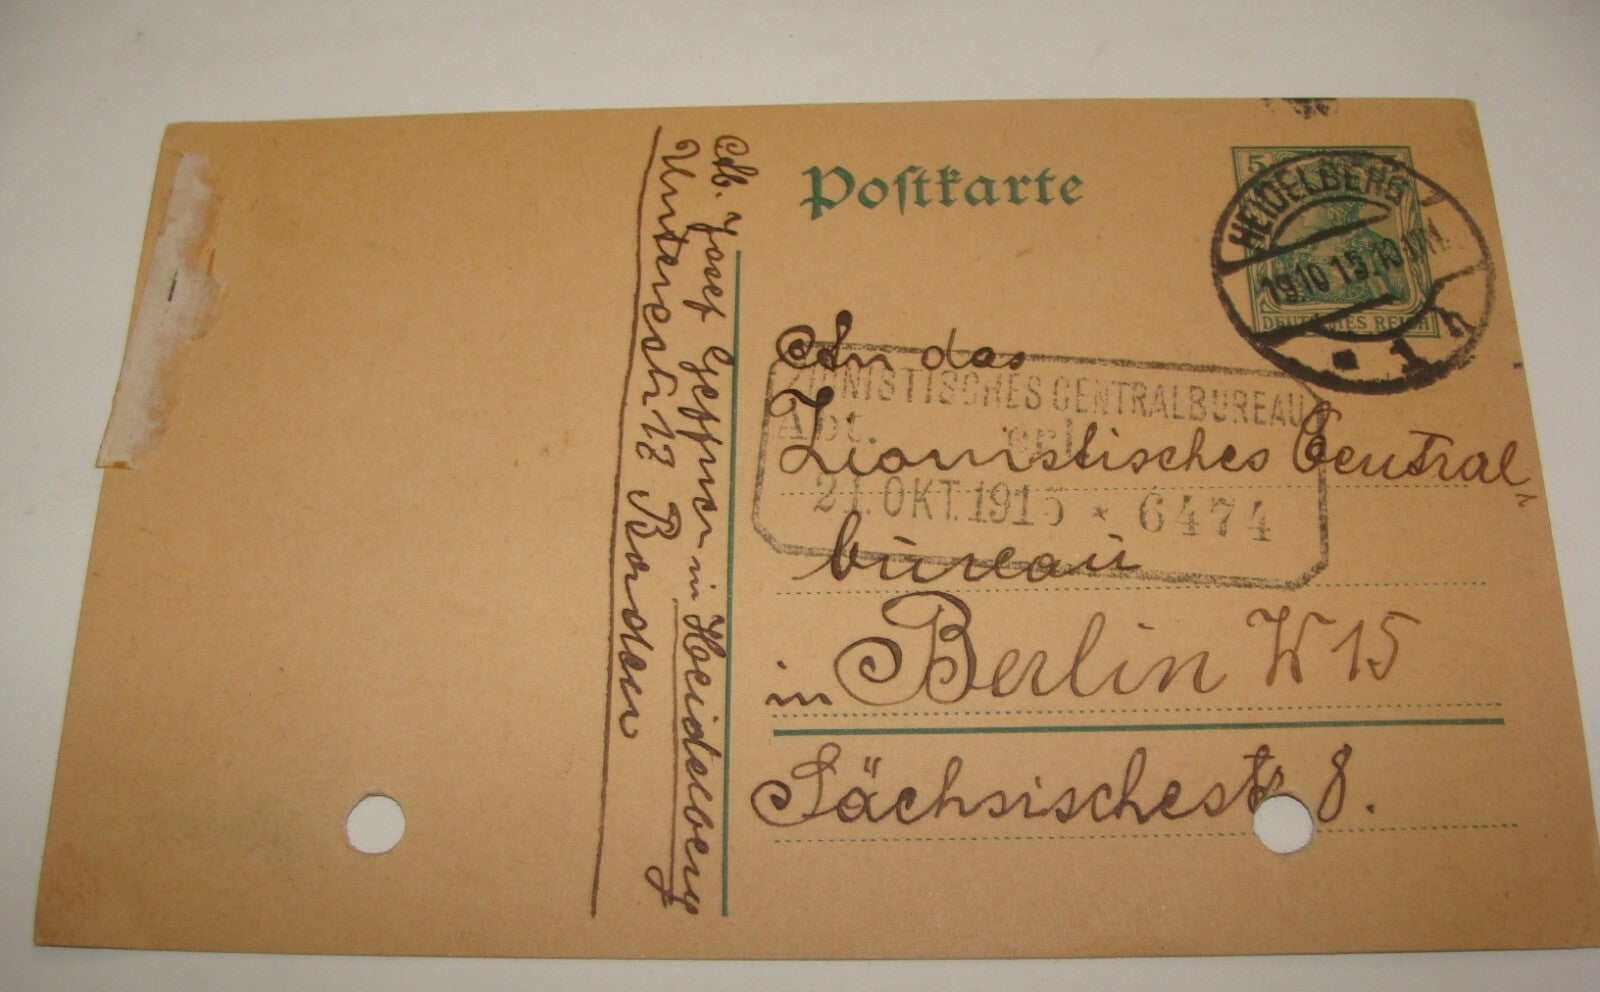 Postkarte
5
DEUTSCHES REICH
HEIDELBERG
19.10.15.10-11V.
* 1
An das
Zionistisches Central
büreau
in Berlin W 15
Sächsischestr 8.
ZIONISTISCHES CENTRALBUREAU
Abt. erl.
21. OKT. 1915 * 6474
Ab. Josef Geffner in Heidelberg
Unterestr 12 Baden